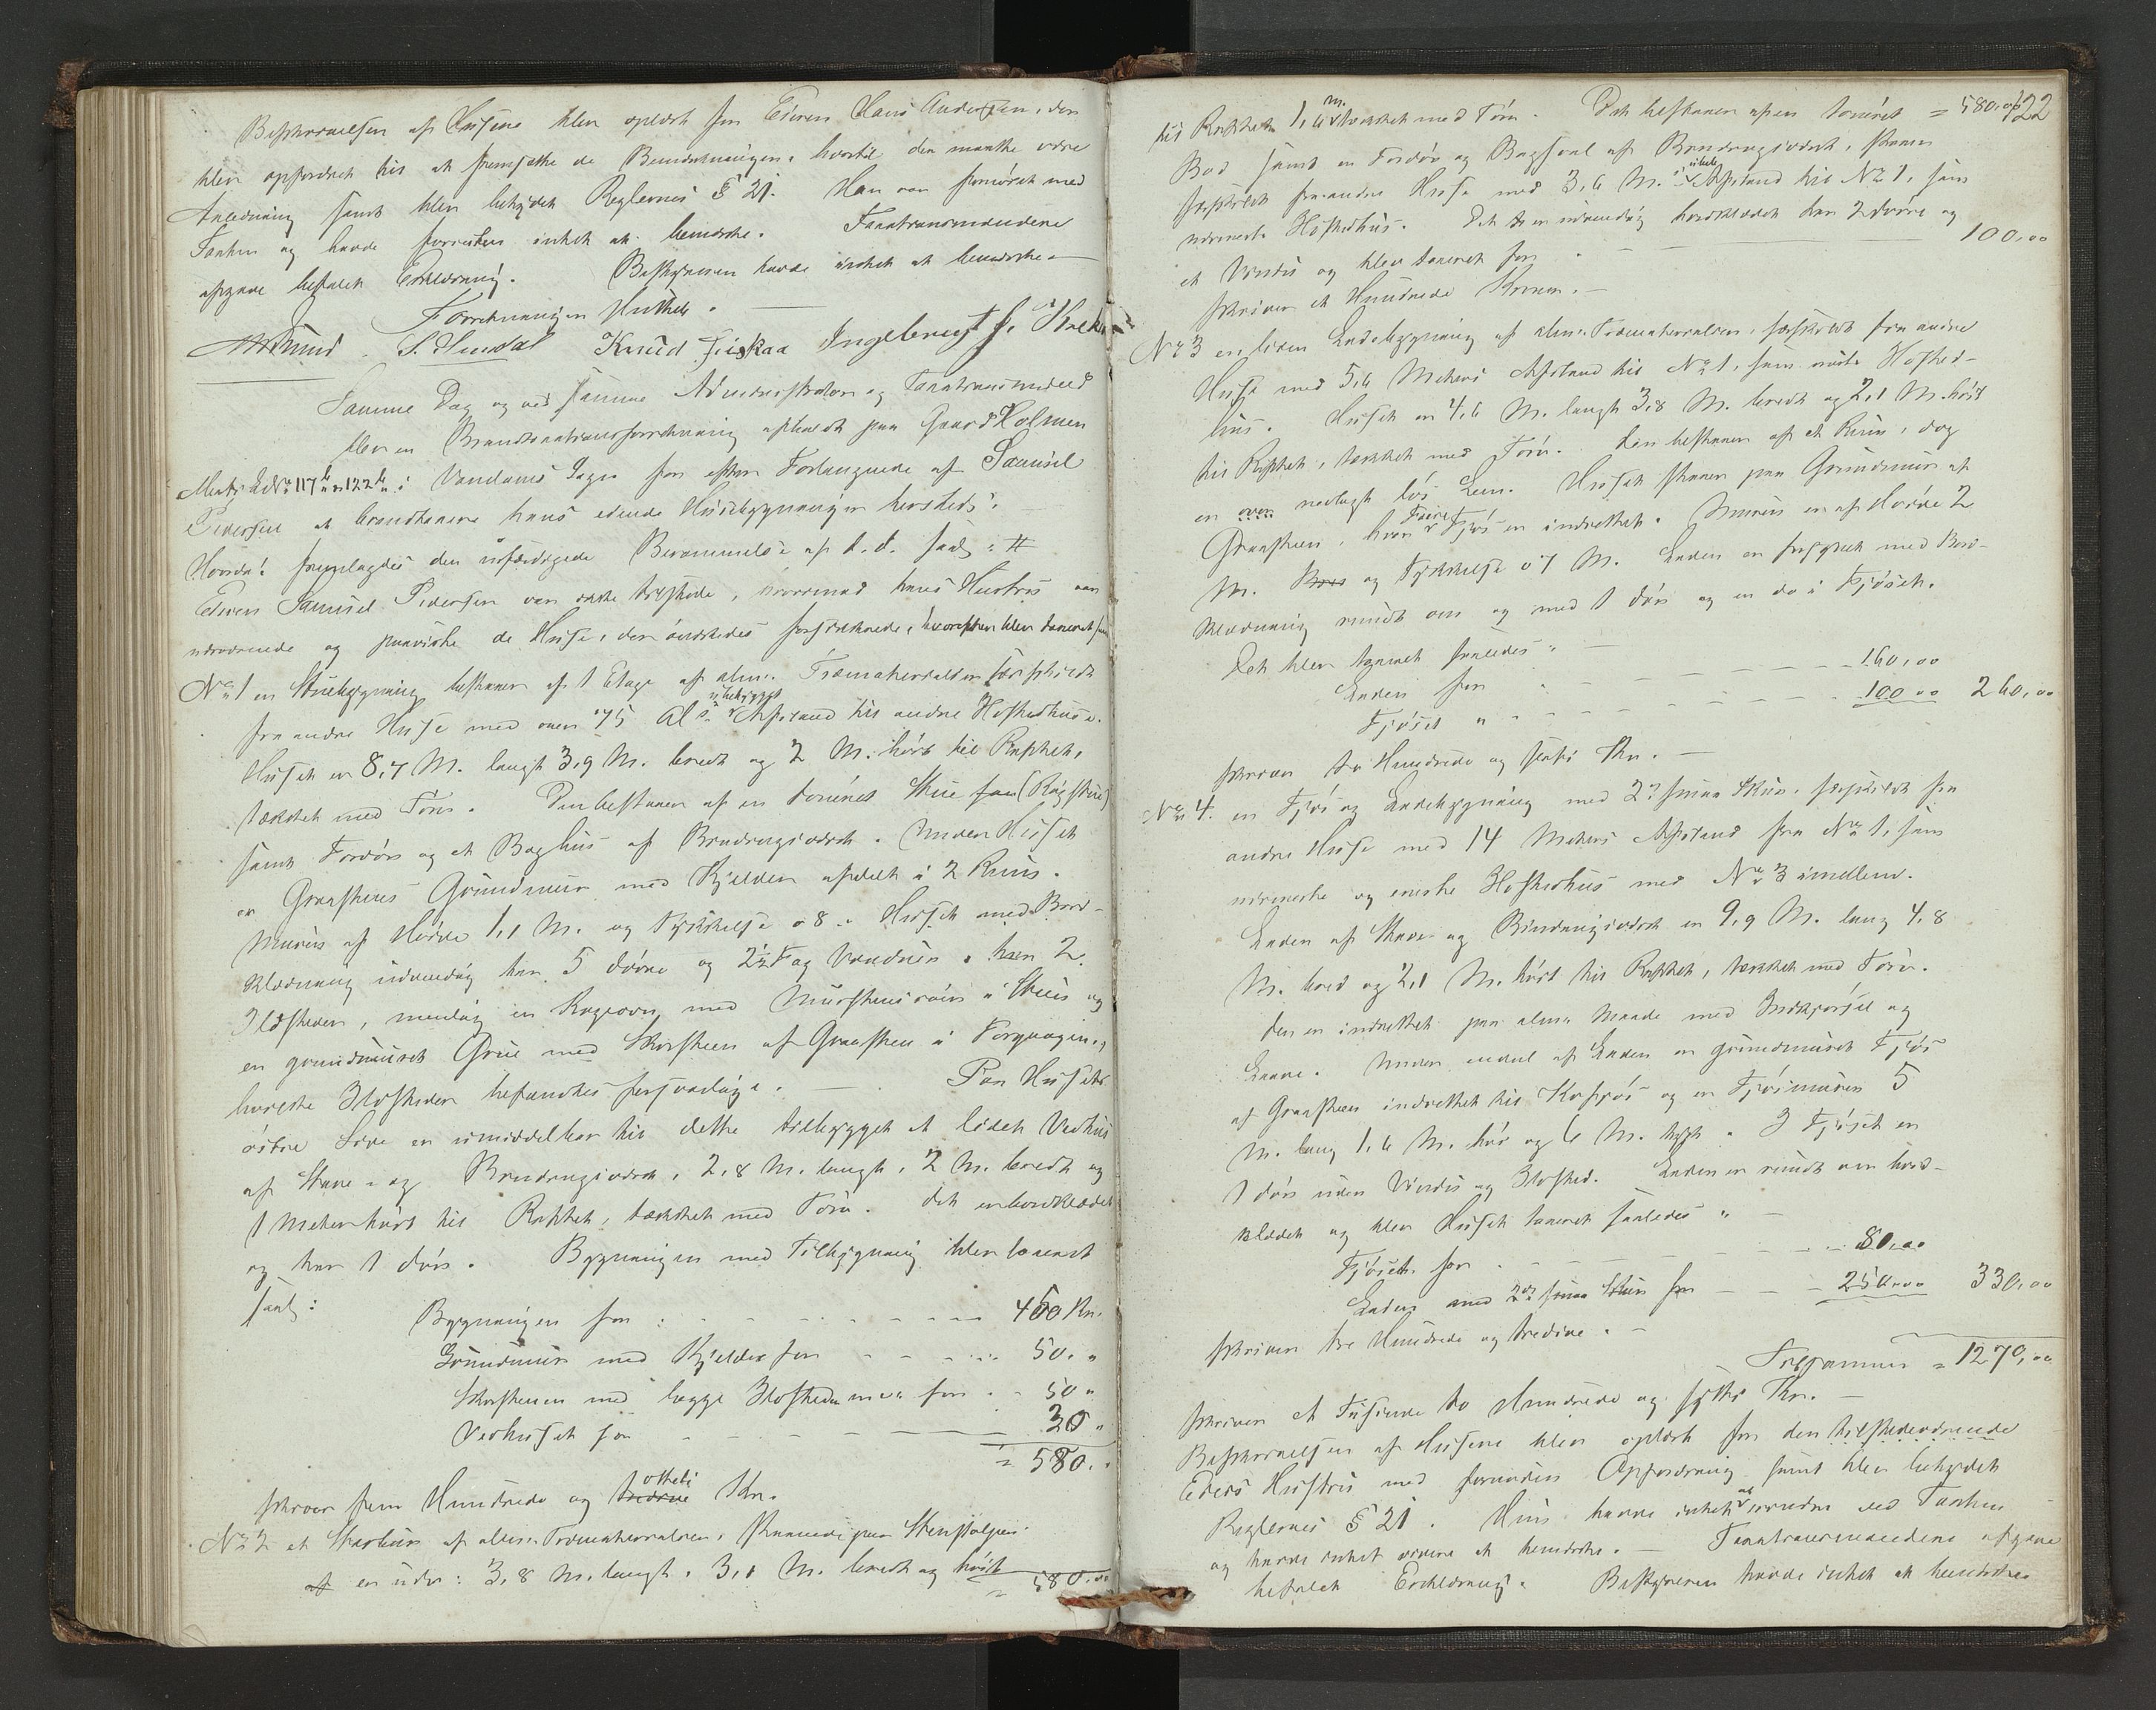 Beskrivelsen af Husene blev oplæst for Eieren Hans Andersen, den
blev opfordret til at fremsætte de Bemærkninger, hvortil der maatte være
Anledning samt blev betydet Reglernes § 21. Han var fornøiet med
Taxten og havde forresten intet at bemærke. Taxationsmændene
afgave befalet Erklæring. Bestyreren havde intet at bemærke.
Forretningen sluttet.
S. Hendal Knud Fiskaa Ingebregt J.
Samme Dag og ved samme Administration og Taxationsmænd
blev en Brandtaxationsforretning afholdt paa Gaard Holmen
Matr. L. No 117 b og 122 b i Vandans Sogn for efter Forlangende af Samuel
Pedersen at brandtaxere hans eiende Huusbygninger hersteds.
Hvorda: fremlagdes den udfærdigede Berammelse af d. d. saal: #
Eieren Samuel Pedersen var ikke tilstede, hvorimod hans Hustru var
nærværende og paaviste de Huse, der ønskedes forsikrede, hvorefter blev taxeret saa
No 1 en Stuebygning bestaaer af 1 Etage af alm. Træmaterialier særskildt
fra andre Huse med over 75 Al: ubebygget Afstand til andre Ildstedhuse.
Huset er 8,7 M. langt 3,9 M. bredt og 2 M. høit til Raftet,
tækket med Törv. Den bestaaer af en tömret Stue (Røgstue)
samt Fordör og et Baghus af Bindingsværk. Under Huset
er Graastens Grundmur med Kjelder afdelt i 2 Rum.
Muren af Höide 1,1 M. og Tykkelse 0,8. Huset med Bord-
klædning udvendig har 5 döre og 2½ Fag Vinduer. har 2
Ildsteder, nemlig en Kogeovn med Murstensrör i Stuen og
en grundmuret Grue med Skorsten af Graasten i Forgangen,
hvilke Ildsteder befandtes forsvarlige. Paa Husets
östre Side er umiddelbar til dette tilbygget et lidet Vedhus
af Stave- og Bindingsværk, 2,8 M. langt, 2 M. bredt og
1 Meter höit til Raftet, tækket med Törv. Det er bordklædet
og har 1 dör. Bygningen med Tilbygning blev taxeret
saal:
Bygningen for 450 Kr.
Grundmur med Kjelder for 50. "
Skorstenen med begge Ildstederne for 50 "
Vedhuset for 30 "
= 580. "
skriver fem Hundrede og otteti Kr.
No 2 et Stabbur af alm. Træmaterialier, staaende paa Stenstolper
er udv: 3,8 M. langt, 3,1 M. bredt og höit
= 580,00
22
til Raftet 1,6 M. tækket med Törv. Det bestaaer af en tömret = 580,00
Bod samt en Fordör og Bagsval af Bindingsværk, staaer
særskildt fra andre Huse med 3,6 M. ubeb. Afstand til No 1, som
nærmeste Ildstedhus. Det er udvendig bordklædet har 2 döre og
et Vindu og blev taxeret for 100,00
skriver et Hundrede Kroner.
No 3 en liden Ladebygning af alm. Træmaterialier, særskildt fra andre
Huse med 5,6 Meters Afstand til No 1, som eneste Ildsted-
hus. Huset er 4,6 M. langt 3,8 M. bredt og 2,1 M. höit
til Raftet, tækket med Törv. Den bestaaer af et Rum, dog
en nedlagt lös Lem. Huset staaer paa Grundmur af
Graasten, hvori Faarefjös er indrettet. Muren er af Höide 2
M. og Tykkelse 0,7 M. Laden er forsynet med Bord-
klædning rundt om og med 1 dör og en do i Fjöset.
Det blev taxeret saaledes:
Laden for 160,00
Fjöset " 100,00 260,00
skriver to Hundrede og seksti Kr.
No 4. en Fjös og Ladebygning med 2 smaa Skur, særskildt fra
andre Huse med 14 Meters Afstand fra No 1, som
nærmeste og eneste Ildstedhus med No 3 imellem.
Laden af Stave- og Bindingsværk er 9,9 M. lang 4,8
M. bred og 2,1 M. höit til Raftet, tækket med Törv.
den er indrettet paa alm. Maade med Indkjörsel og
Laave. Under endel af Laden er grundmuret Fjös
af Graasten indrettet til Kofjös og er Fjösmuren 5
M. lang 1,6 M. höi og 6 M. tykk. I Fjöset er
1 dör uden Vindu og Ildsted. Laden er rundt om bord-
klædet og blev Huset taxeret saaledes:
Fjöset for 80,00
Laden med 2 smaa Skur for 250,00 330,00
skriver tre Hundrede og tredive.
Tilsammen = 1270,00
skriver et Tusinde to Hundrede og sytti Kr.
Beskrivelsen af Husene blev oplæst for den tilstedeværende
Eiers Hustru med foranden Opfordring samt blev betydet
Reglernes § 21. Hun havde intet at erindre ved Taxten
og havde intet videre at bemærke. Taxationsmændene afgave
befalet Erklæring. Bestyreren havde intet at bemærke